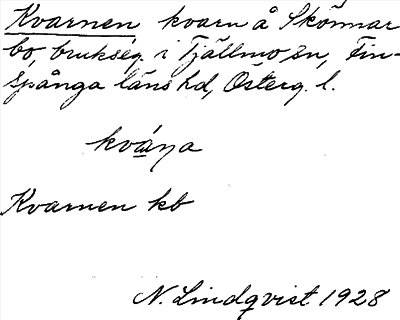 Kvarnen kvarn å Skönnar
bo, brukseg. i Tjällmo sn, Fin-
spånga läns hd, Österg. l.
kváṇa
Kvarnen kb
N. Lindqvist 1928